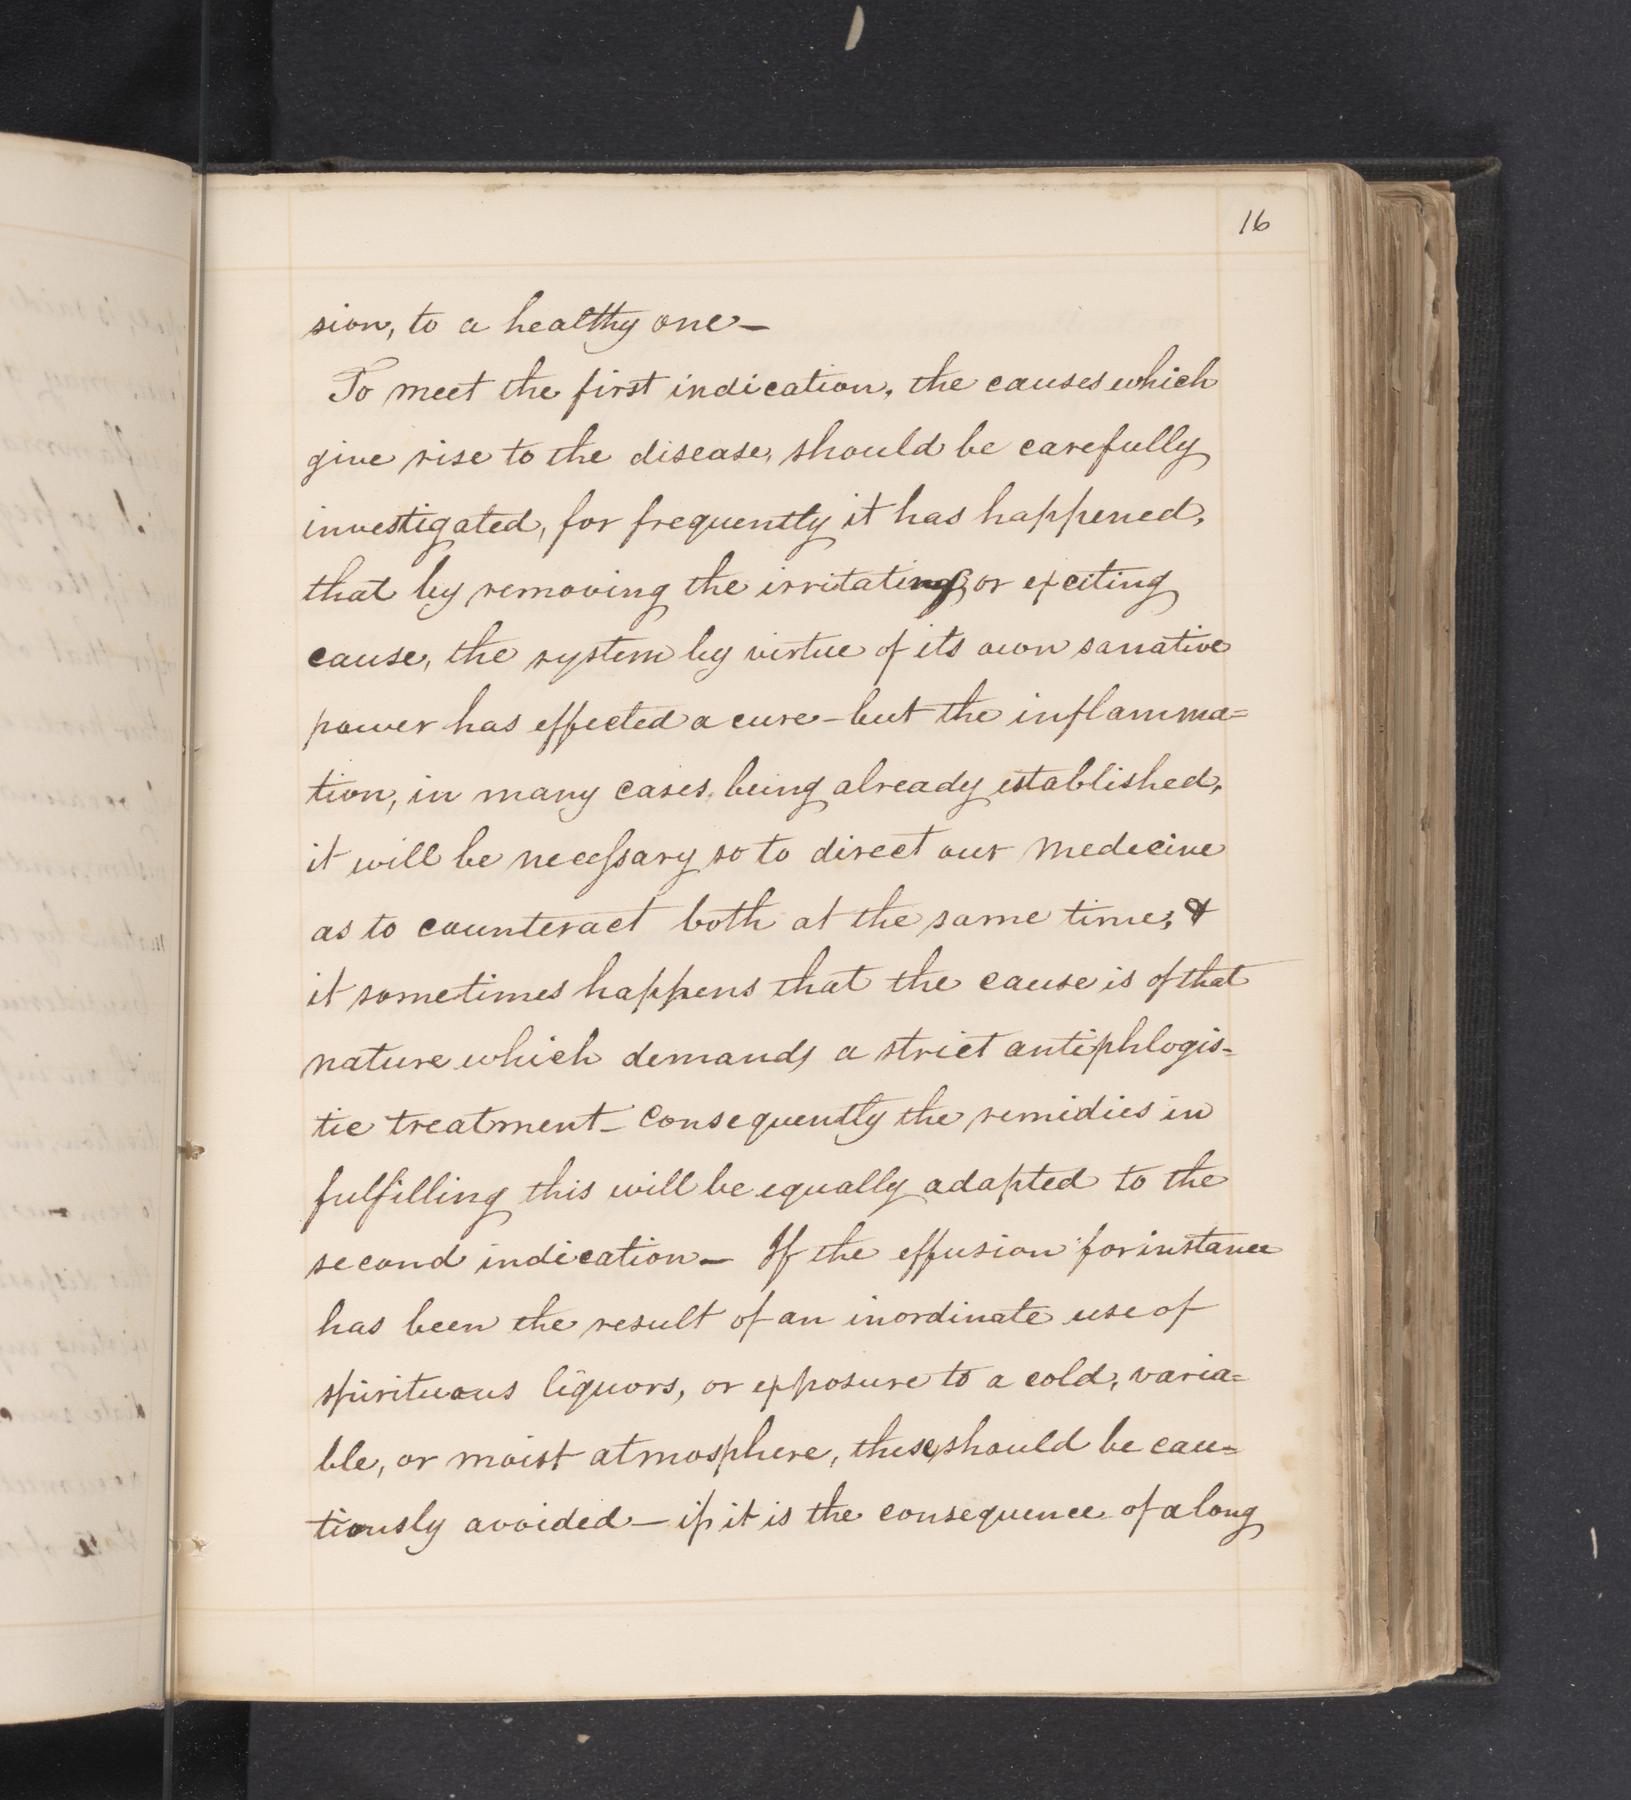 16
sion, to a healthy one—
To meet the first indication, the causes which
give rise to the disease, should be carefully
investigated, for frequently it has happened,
that by removing the irritating, or exciting
cause, the system by virtue of its own sanative
power has effected a cure – but the inflamma=
tion, in many cases, being already established,
it will be necessary so to direct our medicine
as to counteract both at the same time; &
it sometimes happens that the cause is of that
nature which demands a strict antiphlogis=
tic treatment – Consequently the remidies in
fulfilling this will be equally adapted to the
second indication — If the effusion for instance
has been the result of an inordinate use of
spirituous liquors, or exposure to a cold, varia=
ble, or moist atmosphere, these, should be cau=
tiously avoided — if it is the consequence of a long